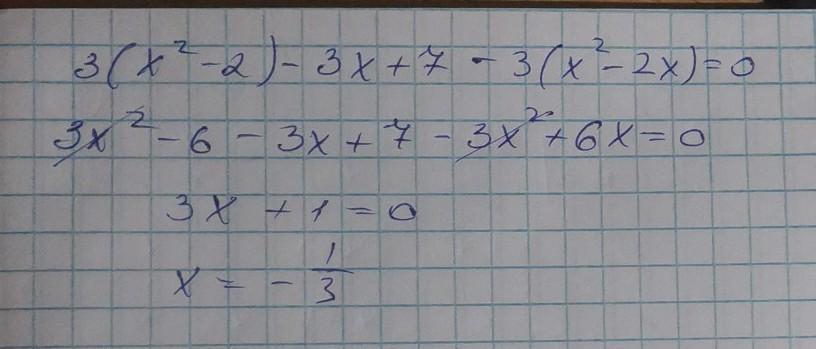 3(x² - 2) - 3x + 7 - 3(x² - 2x) = 0
3x² - 6 - 3x + 7 - 3x² + 6x = 0
3x + 1 = 0
x = - 1/3